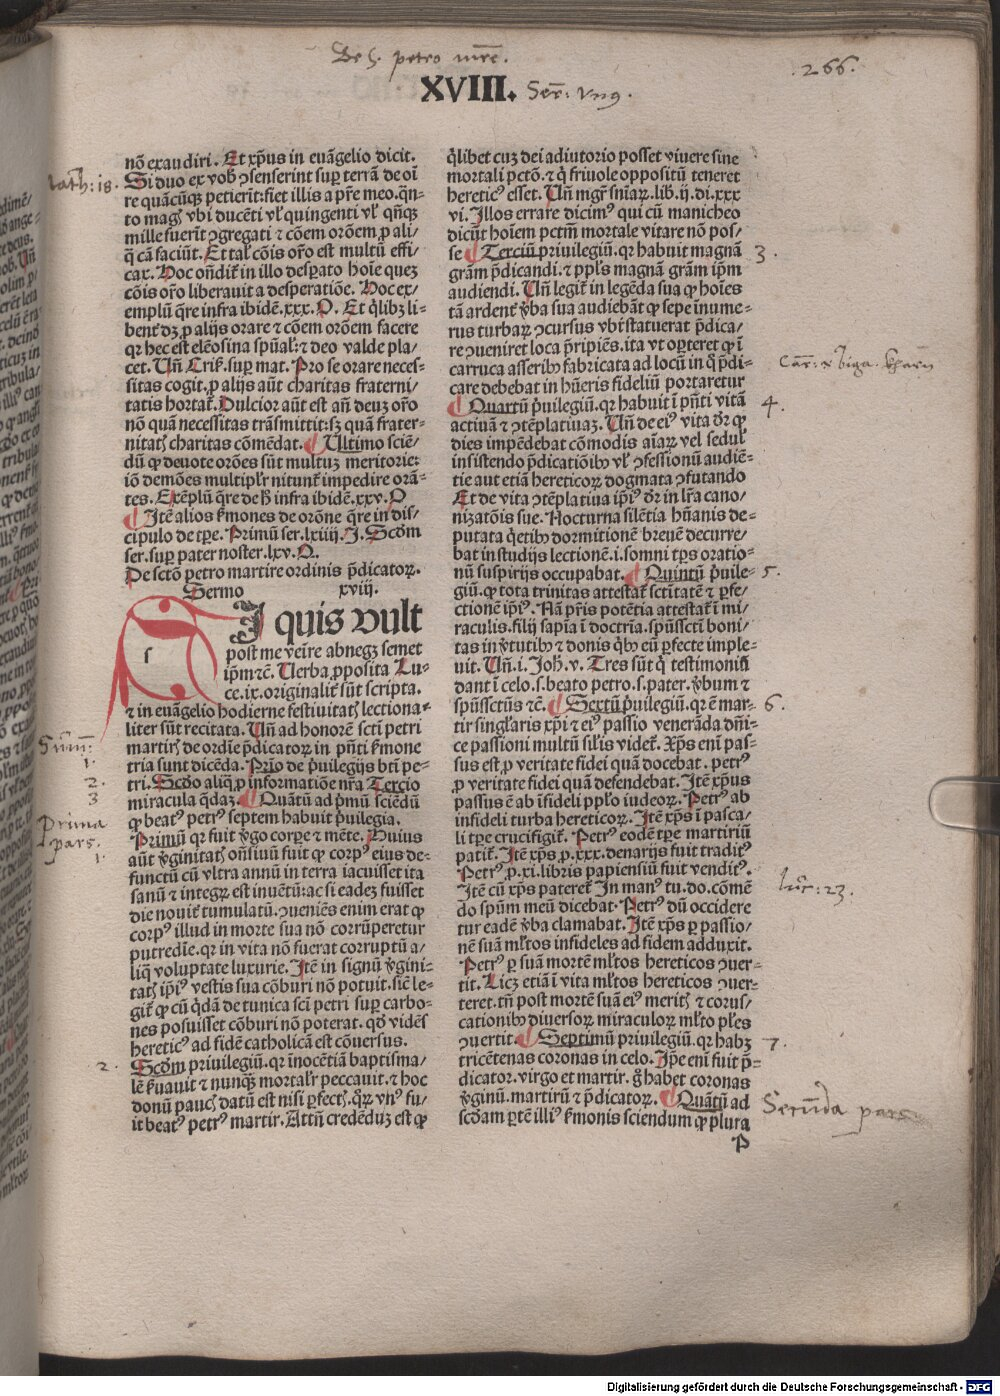 De s. petro mre.
XVIII. Ser: vnꝰ.
.266.
nō exaudiri. Et xp̄us in euāgelio dicit.
Si duo ex vob̄ ꝯsenserint suꝑ terrā de oī
re quācūqꝫ petierit: fiet illis a pr̄e meo. q̄n-
to magꝭ vbi ducēti vl̓ quingenti vl̓ qn̄qꝫ
mille fuerīt ꝯgregati ⁊ cōem orōem ꝑ ali/
q̄ cā faciūt. Et tal̓ cōis orō est multū effi
cax. Hoc ondiť in illo desꝑato hoīe queꝫ
cōis orō liberauit a desperatiōe. Hoc ex/
emplū q̄re infra ibidē. xxx. O. Et q̄libꝫ li-
bent̓ dꝫ ꝓ alijs orare ⁊ cōem orōem facere
qr hec est elēosina spūal̓: ⁊ deo valde pla/
cet. Vn̄ Cris̓. suꝑ mat. Pro se orare neces-
sitas cogit. ꝓ alijs aūt charitas fraterni/
tatis hortat̓. Dulcior aūt est an̄ deuꝫ orō
nō quā necessitas trāsmittit: sꝫ quā frater-
nitatꝭ charitas cōmēdat. ¶ Ultimo sciē/
dū ꝙ deuote orōes sūt multuꝫ meritorie:
iō demōes multiplr̓ nitunt̓ impedire orā-
tes. Exēplū q̄re de h̓ infra ibidē. xxv. O
¶ Itē alios s̓mones de orōne q̄re in dis/
cipulo de tꝑe. Primū ser. lxiiij. I. Scōm
ser. suꝑ pater noster. lxv. O.
De sctō petro martire ordinis p̄dicatoꝝ.
Sermo xviij.
SI quis vult
post me veīre abnegꝫ semet
ip̄m ⁊c̄. Uerba ꝓposita Lu-
ce. ix. originalit̓ sūt scripta.
⁊ in euāgelio hodierne festiuitatꝭ lectiona-
liter sūt recitata. Vn̄ ad honorē scti petri
martirꝭ de ordīe p̄dicatoꝝ in pn̄ti s̓mone
tria sunt dicēda. Prīo de p̓uilegijs bt̄i pe-
tri. Scd̄o aliq̄ ꝓ informatiōe nr̄a Tercio
miracula q̄daꝫ. ¶ Quātū ad p̓mū sciēdū
ꝙ beatꝰ petrꝰ septem habuit p̓uilegia.
Primū qr fuit v̓go corꝑe ⁊ mēte. Huius
aūt v̓ginitatꝭ on̄siuū fuit ꝙ corpꝰ eius de-
functū cū vltra annū in terra iacuisset ita
sanū ⁊ integrꝝ est inuētū: ac si eadeꝫ fuisset
die nouit̓ tumulatū. ꝯueniēs enim erat ꝙ
corpꝰ illud in morte sua nō corrūperetur
putredīe. qr in vita nō fuerat corruptū a/
liq̄ voluptate luxurie. Itē in signū v̓gini-
tatꝭ ip̄iꝰ vestis sua cōburi nō potuit. sic̄ le-
git̓ ꝙ cū q̄dā de tunica sci petri suꝑ carbo-
nes posuisset cōburi nō poterat. qd̓ vidēs
hereticꝰ ad fidē catholicā est cōuersus.
Scōm priuilegiū. qr inocētiā baptisma/
lē s̓uauit ⁊ nunqꝫ mortalr̓ peccauit. ⁊ hoc
donū paucꝭ datū est nisi ꝑfectꝭ. q̄ꝝ vnꝰ fu/
it beatꝰ petrꝰ martir. Attn̄ credēduꝫ est ꝙ
q̄libet cuꝫ dei adiutorio posset viuere sine
mortali pctō. ⁊ q̓ friuole oppositū teneret
hereticꝰ esset. Vn̄ mgr̄ sniaꝝ. lib. ij. di. xxx
vi. Illos errare dicimꝰ qui cū manicheo
dicūt hoīem pctm̄ mortale vitare nō pos/
se ¶ Terciū priuilegiū. qr habuit magnā
grām p̄dicandi. ⁊ ppl̓s magnā grām ip̄m
audiendi. Vn̄ legit̓ in legēda sua ꝙ hoīes
tā ardent̓ v̓ba sua audiebāt ꝙ sepe īnume-
rus turbaꝝ ꝯcursus vbi statuerat p̄dica/
re ꝯueniret loca p̄ripiēs. ita vt oꝑteret ꝙ ī
carruca asseribꝰ fabricata ad locū in q̄ p̄di-
care debebat in hūeris fideliū portaretur
¶ Quartū p̓uilegiū. qr habuit ī pn̄ti vitā
actiuā ⁊ ꝯtēplatiuaꝫ. Vn̄ de eiꝰ vita dr̄ ꝙ
dies impēdebat cōmodis aīaꝝ vel sedul̓
insistendo p̄dicatiōibꝰ vl̓ ꝯfessionū audiē-
tie aut etiā hereticoꝝ dogmata ꝯfutando
Et de vita ꝯtēplatiua ip̄iꝰ dr̄ in lr̄a cano/
nizatōis sue. Nocturna silētia hūanis de-
putata q̄etibꝰ dormitionē breuē decurre/
bat in studijs lectionē. i. somni tꝑs oratio-
nū suspirijs occupabat. ¶ Quintū p̓uile-
giū. ꝙ tota trinitas attestat̓ sctitatē ⁊ ꝑfe/
ctionē ip̄iꝰ. Nā pr̄is potētia attestat̓ ī mi/
raculis. filij sapīa ī doctrīa. spūssct̄i boni/
tas in v̓tutibꝰ ⁊ donis q̓bꝰ eū ꝑfecte imple-
uit. Vn̄. i. Joh̓. v. Tres sūt q̓ testimoniū
dant ī celo. s. beato petro. s. pater. v̓bum ⁊
spūssctūs ⁊c̄. ¶ Sextū p̓uilegiū. qr ē mar-
tir singl̓aris xp̄i ⁊ eiꝰ passio venerāda dn̄i-
ce passioni multū sil̓is videt̓. Xp̄s eni pas-
sus est ꝓ veritate fidei quā docebat. petrꝰ
ꝓ veritate fidei quā defendebat. Itē xp̄us
passus ē ab īfideli pplo iudeoꝝ. Petrꝰ ab
infideli turba hereticoꝝ. Itē xp̄s ī pasca/
li tꝑe crucifigit̓. Petrꝰ eodē tꝑe martiriū
patit̓. Itē xp̄s ꝓ. xxx. denarijs fuit traditꝰ
Petrꝰ ꝓ. xl. libris papiensiū fuit venditꝰ.
Itē cū xp̄s pateret̓ In manꝰ tu. do. cōmē
do spūm meū dicebat. Petrꝰ dū occidere
tur eadē v̓ba clamabat. Itē xp̄s ꝑ passio/
nē suā ml̓tos infideles ad fidem adduxit.
Petrꝰ ꝑ suā mortē ml̓tos hereticos ꝯuer-
tit. Licꝫ etiā ī vita ml̓tos hereticos ꝯuer-
teret. tn̄ post mortē suā eiꝰ meritꝭ ⁊ corus/
cationibꝰ diuersoꝝ miraculoꝝ ml̓to pl̓es
ꝯuertit. ¶ Septimū priuilegiū. qr habꝫ
tricētenas coronas in celo. Ip̄e eni fuit p̄-
dicator. virgo et martir. g̊ habet coronas
v̓ginū. martirū ⁊ p̄dicatoꝝ. ¶ Quātū ad
scd̄am ꝑtē illiꝰ s̓monis sciendum ꝙ plura
P
Math: 18.
Sum̄:
1.
2.
3
Prima
pars.
1.
2.
3.
4.
5.
6.
luc: 23.
7.
Secunda pars
Digitalisierung gefördert durch die Deutsche Forschungsgemeinschaft - DFG